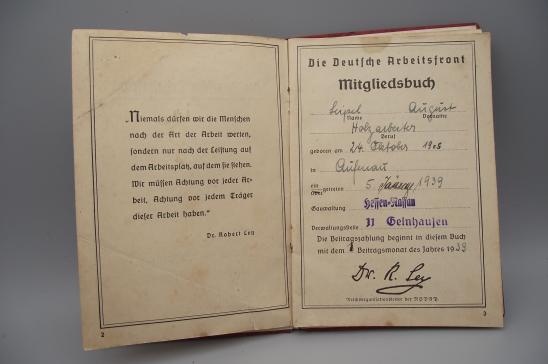 „Niemals dürfen wir die Menschen
nach der Art der Arbeit werten,
sondern nur nach der Leistung auf
dem Arbeitsplatz, auf dem sie stehen.
Wir müssen Achtung vor jeder Ar-
beit, Achtung vor jedem Träger
dieser Arbeit haben."
Dr. Robert Ley
2
Die Deutsche Arbeitsfront
Mitgliedsbuch
Leipel August
Name Vorname
Holzarbeiter
Beruf
geboren am 24. Oktober 1905
in Aufenau
ein
getreten 5. Januar 1939
Gauwaltung Hessen-Nassau
Verwaltungsstelle 11 Gelnhausen
Die Beitragszahlung beginnt in diesem Buch
mit dem 1 Beitragsmonat des Jahres 1939
Dr. R. Ley
Reichsorganisationsleiter der NSDAP.
3